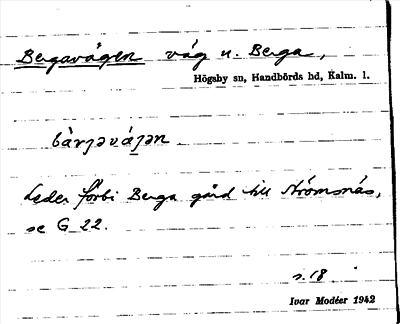 Bergavägen väg n. Berga,
Högsby sn, Handbörds hd, Kalm. l.
bàrjəvájən
Leder förbi Berga gård till Strömsnäs,
se G 22.
s. 18
Ivar Modéer 1942